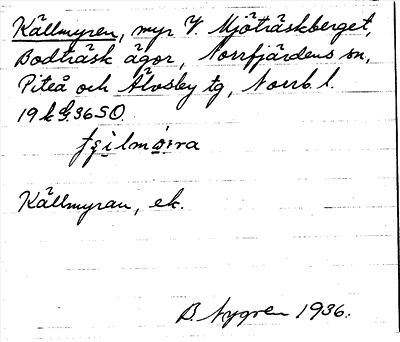 Källmyren, myr V. Mjöträskberget,
Bodträsk ägor, Norrfjärdens sn,
Piteå och Älvsby tg, Norrb. l.
19 k 36 SO.
Källmyran, ek.
B. Nygren 1936.